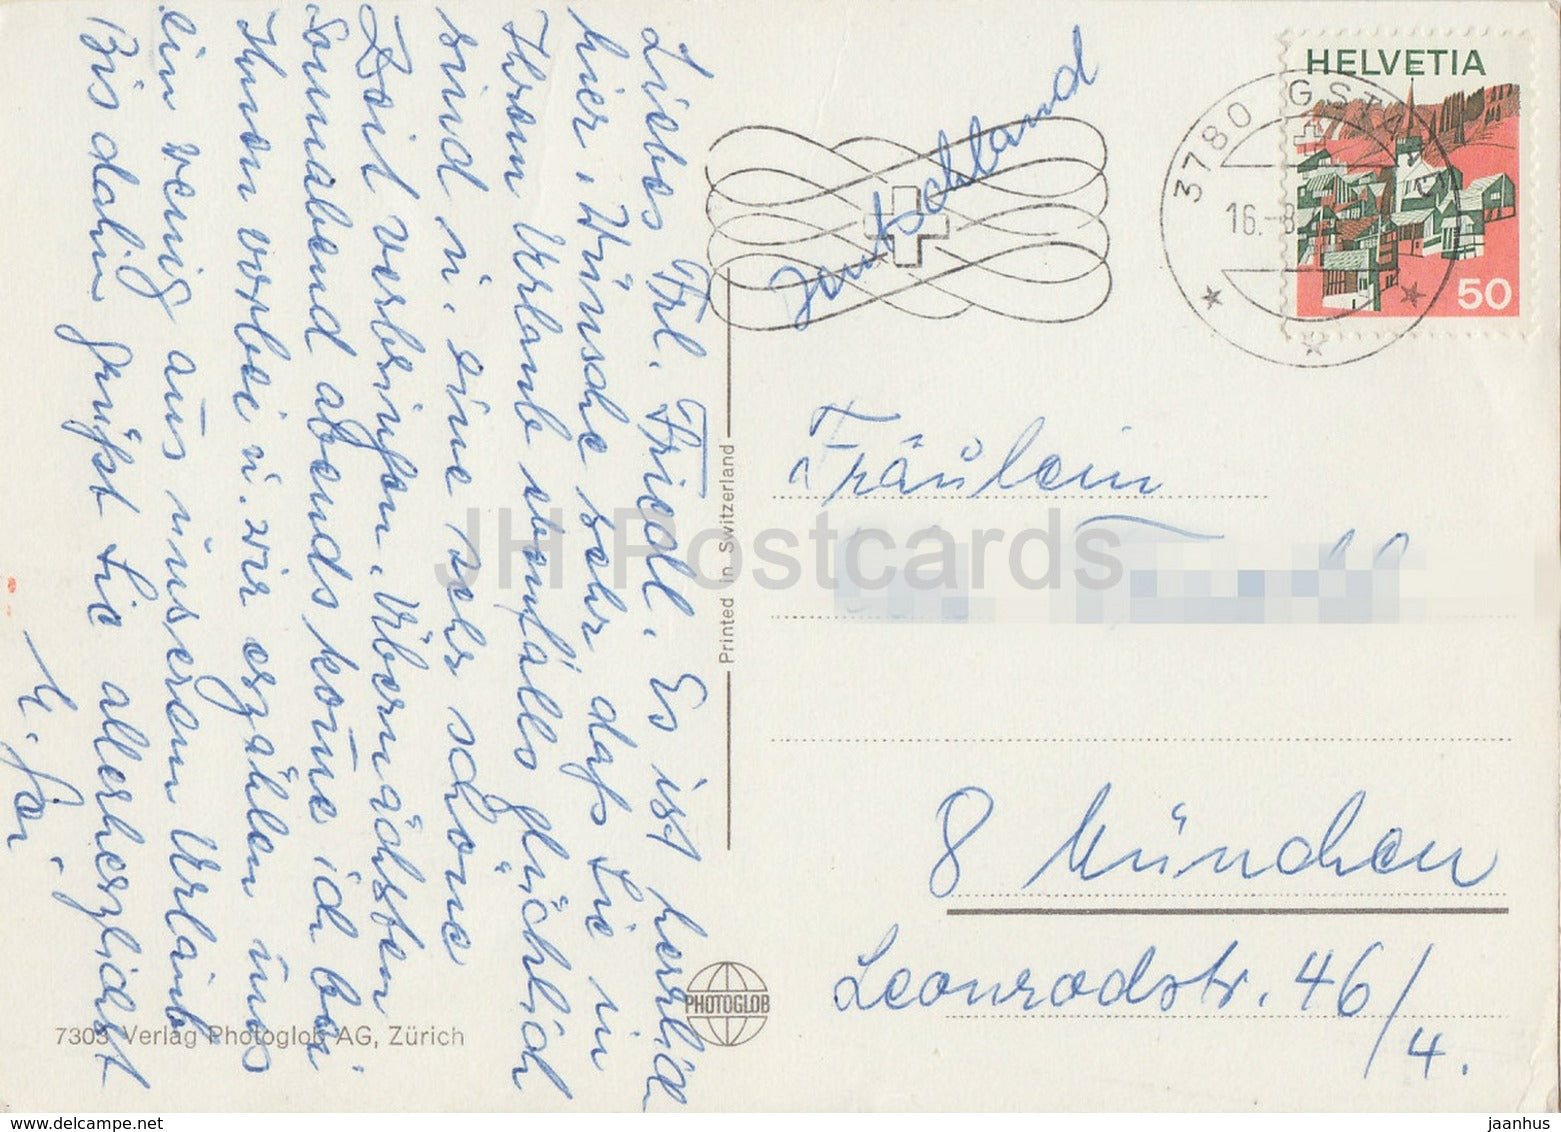 Liebes Frl. Friedl. Es ist herrlich
hier, Wünsche sehr daß Sie in
Ihrem Urlaub ebenfalls glücklich
sind u. eine sehr schöne
Zeit verbringen. Übernächsten
Sonnabend abends kom̄e ich bei
Ihnen vorbei u. wir erzählen uns
ein wenig aus unserem Urlaub
Bis dahin grüßt Sie allerherzlichst
HELVETIA
50
3780 GSTAAD
16.-8.
Deutschland
Fräulein
8 München
Leonrodstr. 46/
4.
Printed in Switzerland
PHOTOGLOB
7303 Verlag Photoglob AG, Zürich
JH Postcards
jaanhus